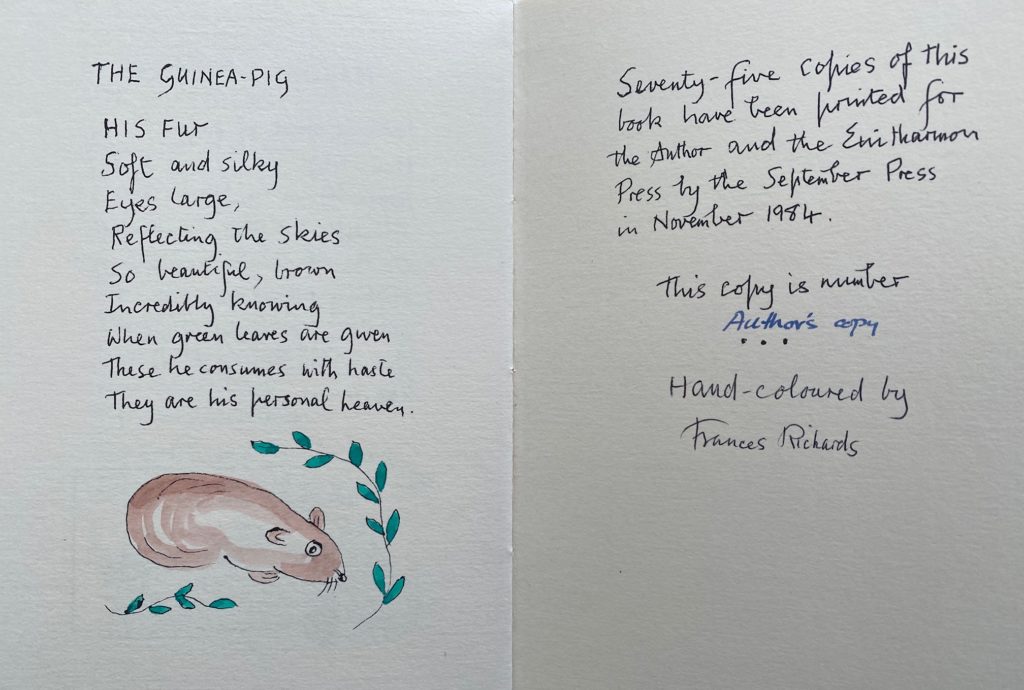 THE GUINEA-PIG
HIS FUR
Soft and silky
Eyes large,
Reflecting the skies
So beautiful, brown
Incredibly knowing
When green leaves are given
These he consumes with haste
They are his personal heaven.
Seventy-five copies of this
book have been printed for
the Author and the Enitharmon
Press by the September Press
in November 1984.
This copy is number
Author's copy
...
Hand-coloured by
Frances Richards